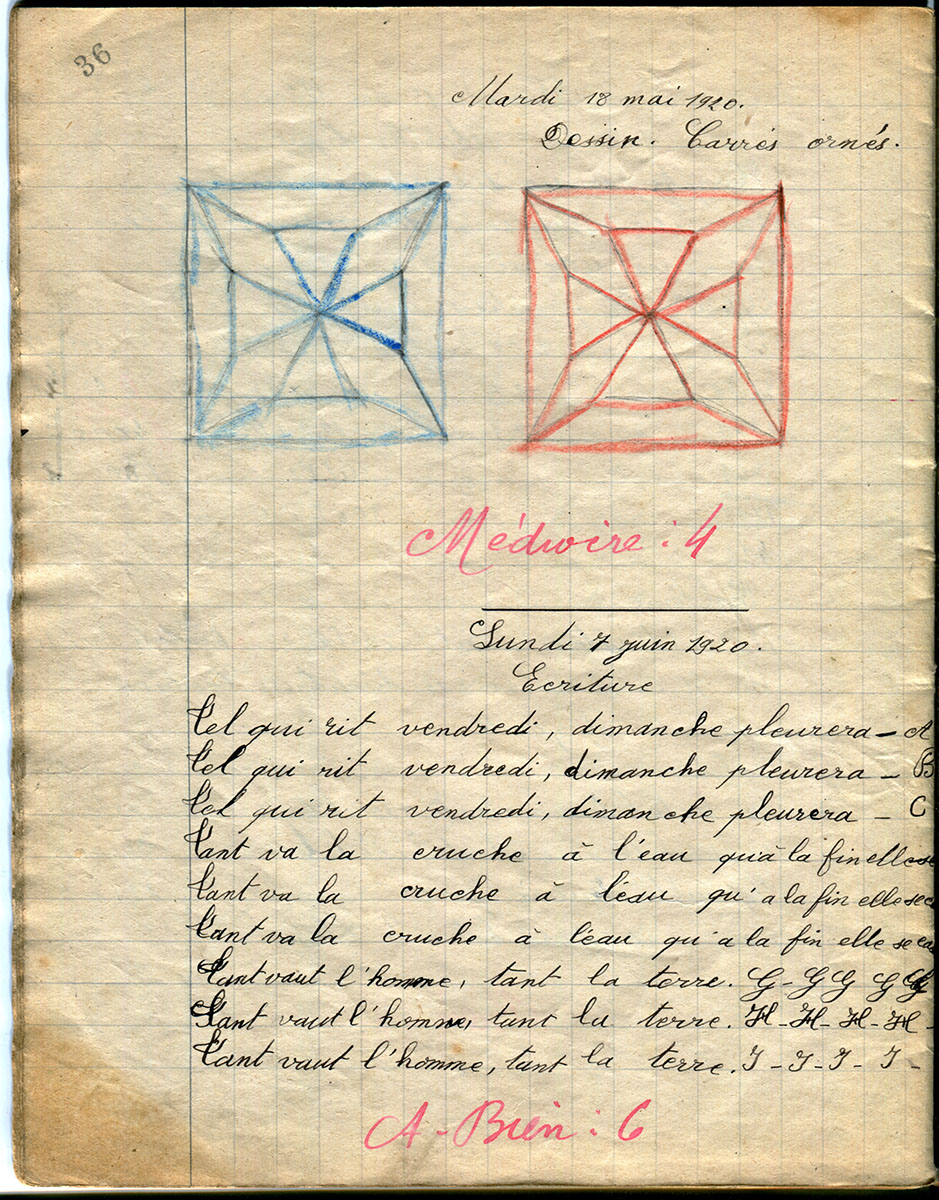 36
Mardi 18 mai 1920.
Dessin. Carrés ornés.
Médiocre : 4
Lundi 7 juin 1920.
Ecriture
Tel qui rit vendredi, dimanche pleurera – A
Tel qui rit vendredi, dimanche pleurera – B
Tel qui rit vendredi, dimanche pleurera – C
Tant va la cruche à l'eau qu'à la fin elle se
Tant va la cruche à l'eau qu'a la fin elle se
Tant va la cruche à l'eau qu'a la fin elle se
Tant vaut l'homme, tant la terre. G - G G G G
Tant vaut l'homme, tant la terre. H - H - H - H -
Tant vaut l'homme, tant la terre. I - I - I - I -
A - Bien : 6